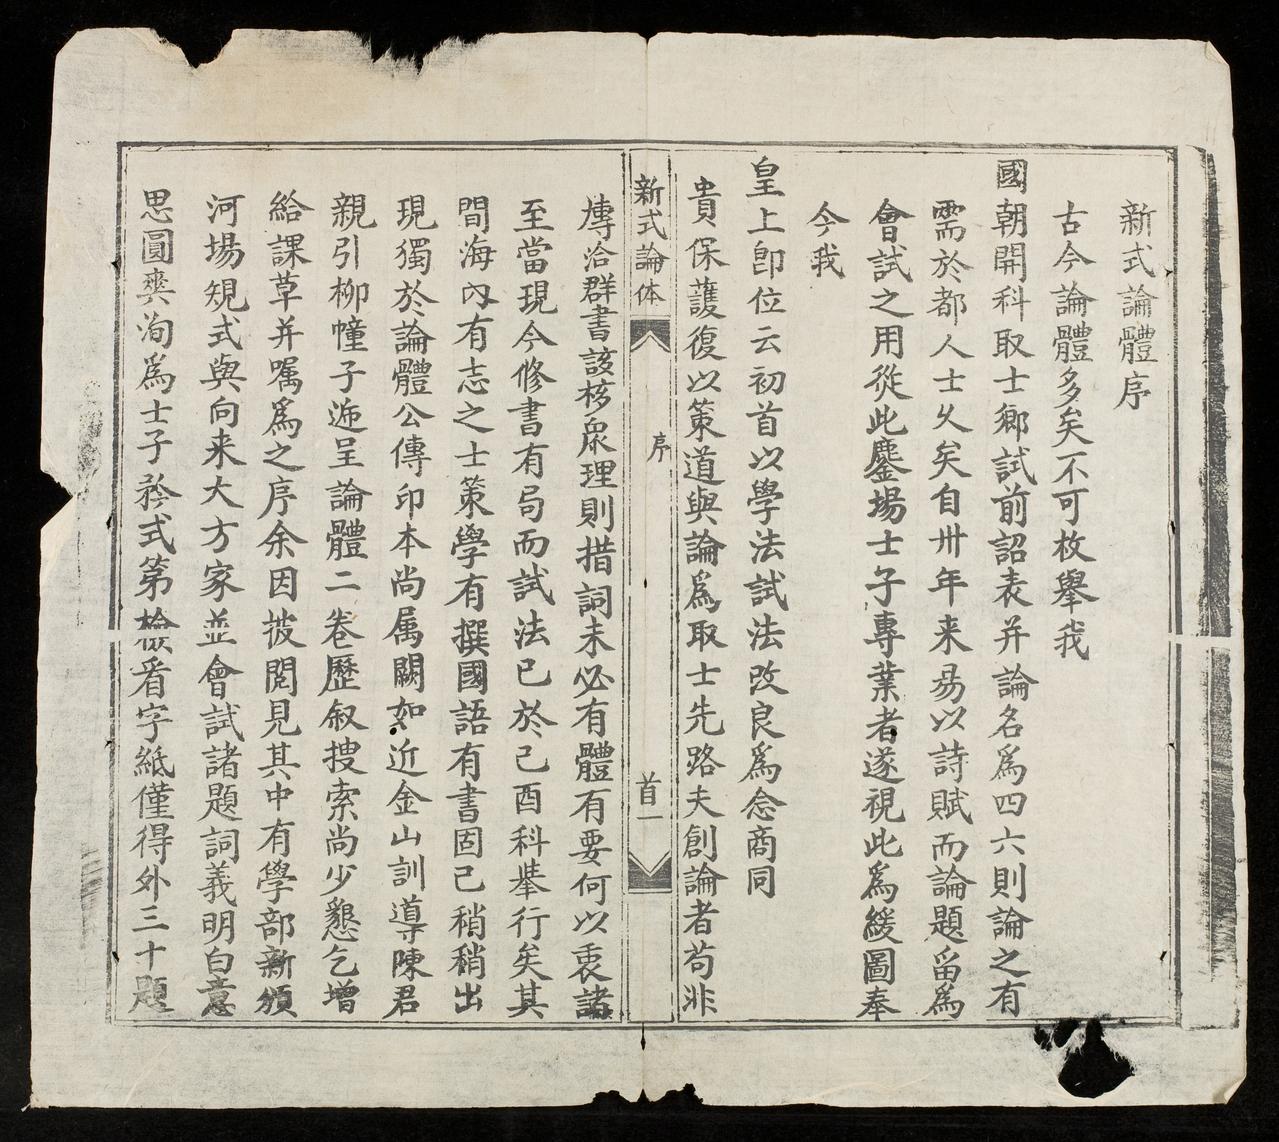 新式論體序
古今論體多矣不可枚舉我
國朝開科取士鄉試前詔表并論名爲四六則論之有
需於都人士久矣自卅年来易以詩賦而論題留爲
會試之用従此鏖場士子專業者遂視此爲緩圖奉
今我
皇上卽位云初首以學法試法改良爲念商同
貴保護復以策道與論爲取士先路夫創論者苟非
新式論体
序
首一
慱洽群書該核衆理則措詞未必有體有要何以衷諸
至當現今修書有局而試法已於己酉科舉行矣其
間海內有志之士策學有撰國語有書固已稍稍出
現獨於論體公傳印本尚属闕如近金山訓導陳君
親引柳幢子逓呈論體二卷歷叙搜索尚少懇乞增
給課草并嘱爲之序余因披閱見其中有學部新頒
河場規式與向来大方家並會試諸題詞義明白意
思圓爽洵爲士子矜式第檢看字紙僅得外三十題